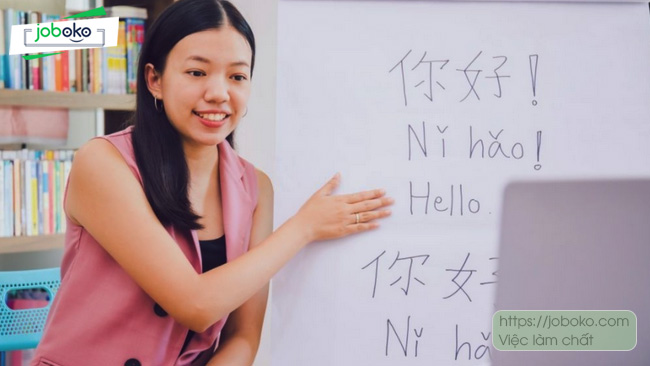 joboko
你好!
Nǐ hǎo!
Hello.
你好
Nǐ hǎ
https://joboko.com
Việc làm chất